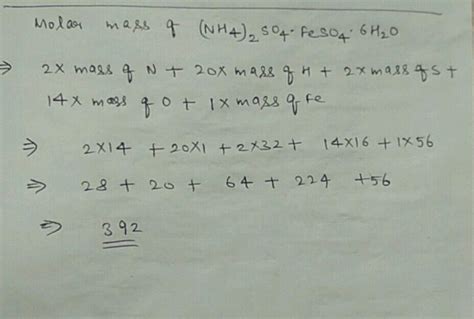 Molar mass of (NH4)2SO4·FeSO4·6H2O
⇒ 2x mass of N + 20x mass of H + 2x mass of S +
14x mass of O + 1x mass of Fe
⇒ 2x14 + 20x1 + 2x32 + 14x16 + 1x56
⇒ 28 + 20 + 64 + 224 +56
⇒ 392